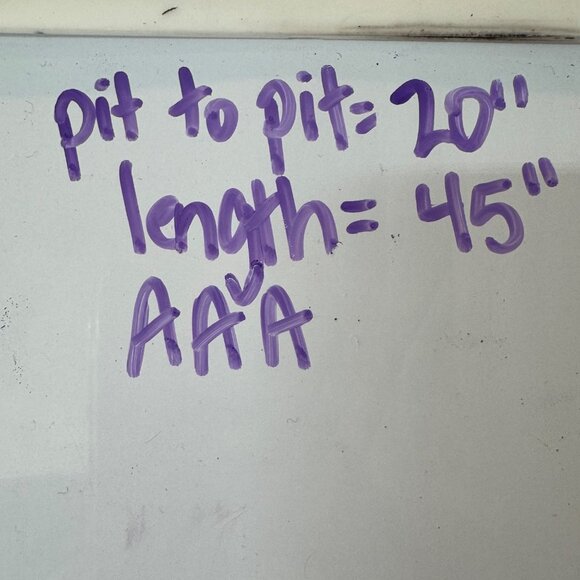 pit to pit= 20"
length= 45"
AAA